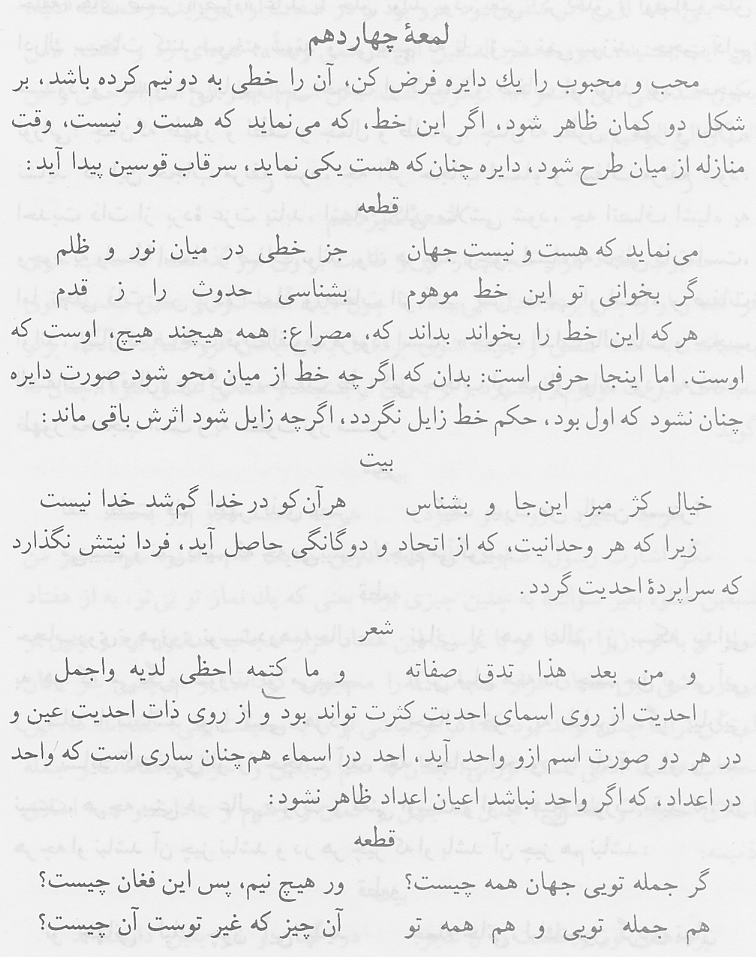 لمعهٔ چهاردهم
محب و محبوب را یك دایره فرض کن، آن را خطی به دونیم کرده باشد، بر
شکل دو کمان ظاهر شود، اگر این خط، که می‌نماید که هست و نیست، وقت
منازله از میان طرح شود، دایره چنان‌که هست یکی نماید، سرقاب قوسین پیدا آید:
قطعه
می‌نماید که هست و نیست جهان جز خطی در میان نور و ظلم
گر بخوانی تو این خط موهوم بشناسی حدوث را ز قدم
هرکه این خط را بخواند بداند که، مصراع: همه هیچند هیچ، اوست که
اوست. اما اینجا حرفی است: بدان که اگر چه خط از میان محو شود صورت دایره
چنان نشود که اول بود، حکم خط زایل نگردد، اگرچه زایل شود اثرش باقی ماند:
بیت
خیال کژ مبر این‌جا و بشناس هرآن‌کو در خدا گم‌شد خدا نیست
زیرا که هر وحدانیت، که از اتحاد و دوگانگی حاصل آید، فردا نیتش نگذارد
که سراپردهٔ احدیت گردد.
شعر
و من بعد هذا تدق صفاته و ما کتمه احظی لدیه واجمل
احدیت از روی اسمای احدیت کثرت تواند بود و از روی ذات احدیت عین و
در هر دو صورت اسم ازو واحد آید، احد در اسماء هم‌چنان ساری است که واحد
در اعداد، که اگر واحد نباشد اعیان اعداد ظاهر نشود:
قطعه
گر جمله تویی جهان همه چیست؟ ور هیچ نیم، پس این فغان چیست؟
هم جمله تویی و هم همه تو آن چیز که غیر توست آن چیست؟